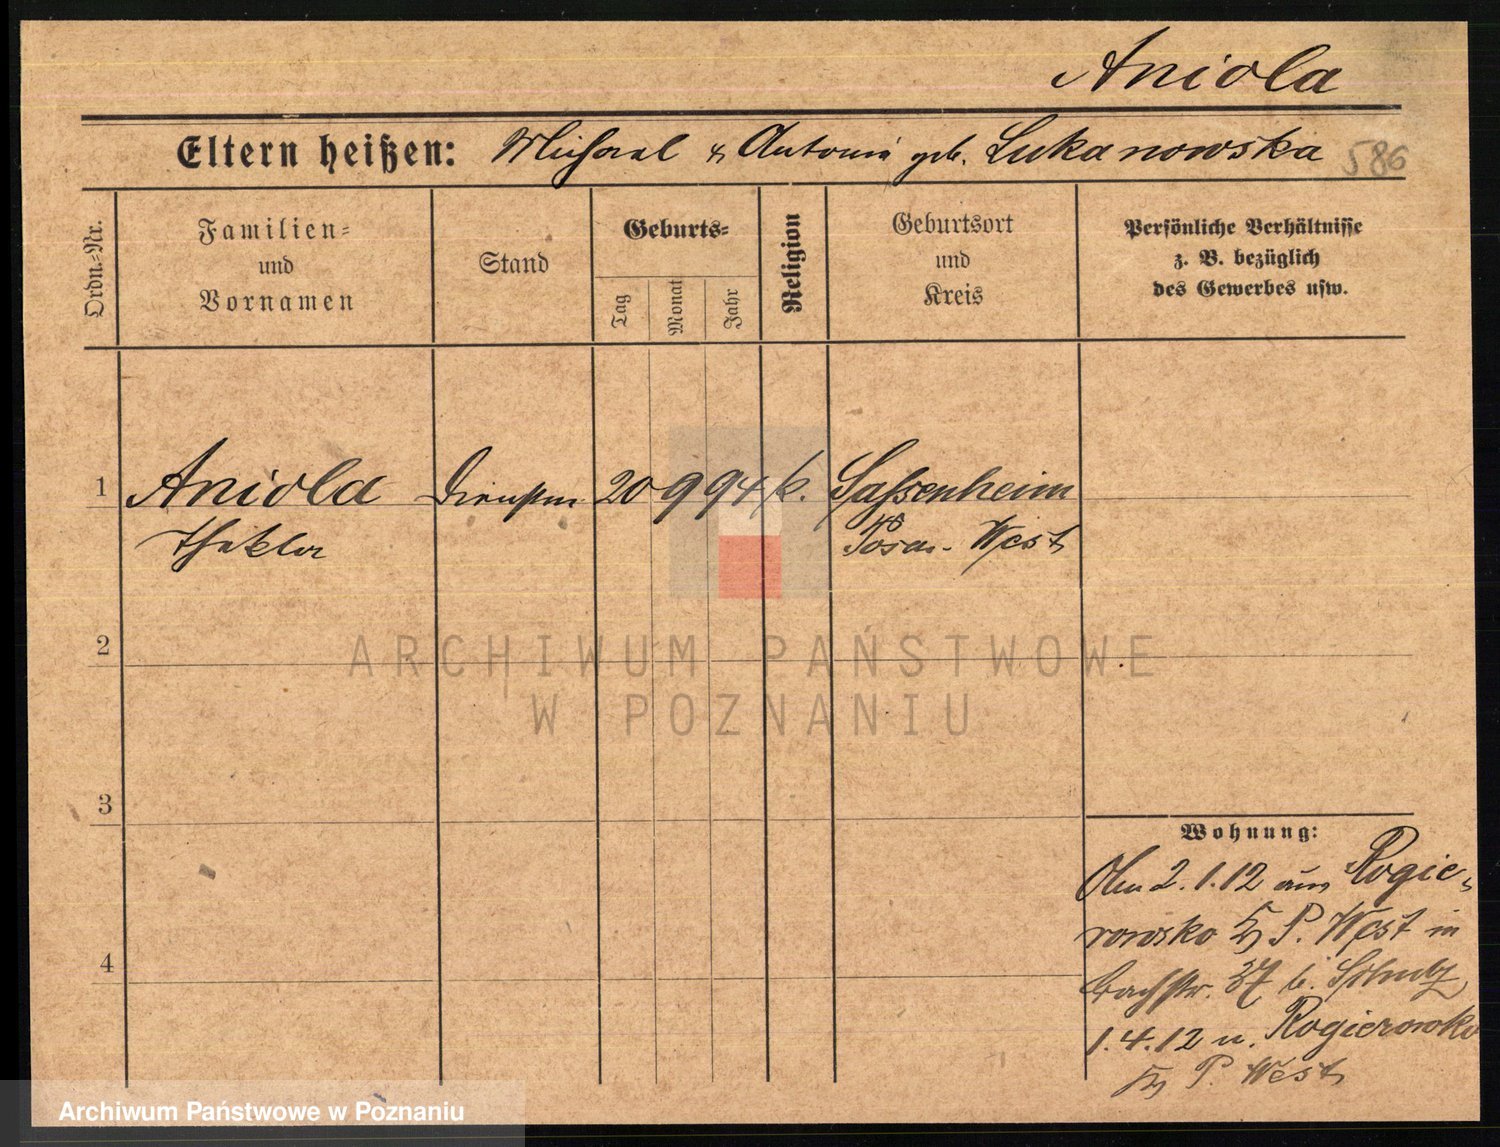 Aniola
Eltern heißen: Michael & Antonie geb. Lukanowska 586
Ordn.-Nr.
Familien-
und
Vornamen
Stand
Geburts-
Tag
Monat
Jahr
Religion
Geburtsort
und
Kreis
Persönliche Verhältnisse
z. B. bezüglich
des Gewerbes usw.
1 Aniola Dienstm 20 9 94 k. Sassenheim
Thekla Posen-West
2
ARCHIWUM PAŃSTWOWE
W POZNANIU
3
Wohnung:
2.1.12 aus Rogie-
rowsko P. West in
4
Bachstr. 37 b. Schulz
1.4.12 n. Rogierowko
P. West
Archiwum Państwowe w Poznaniu